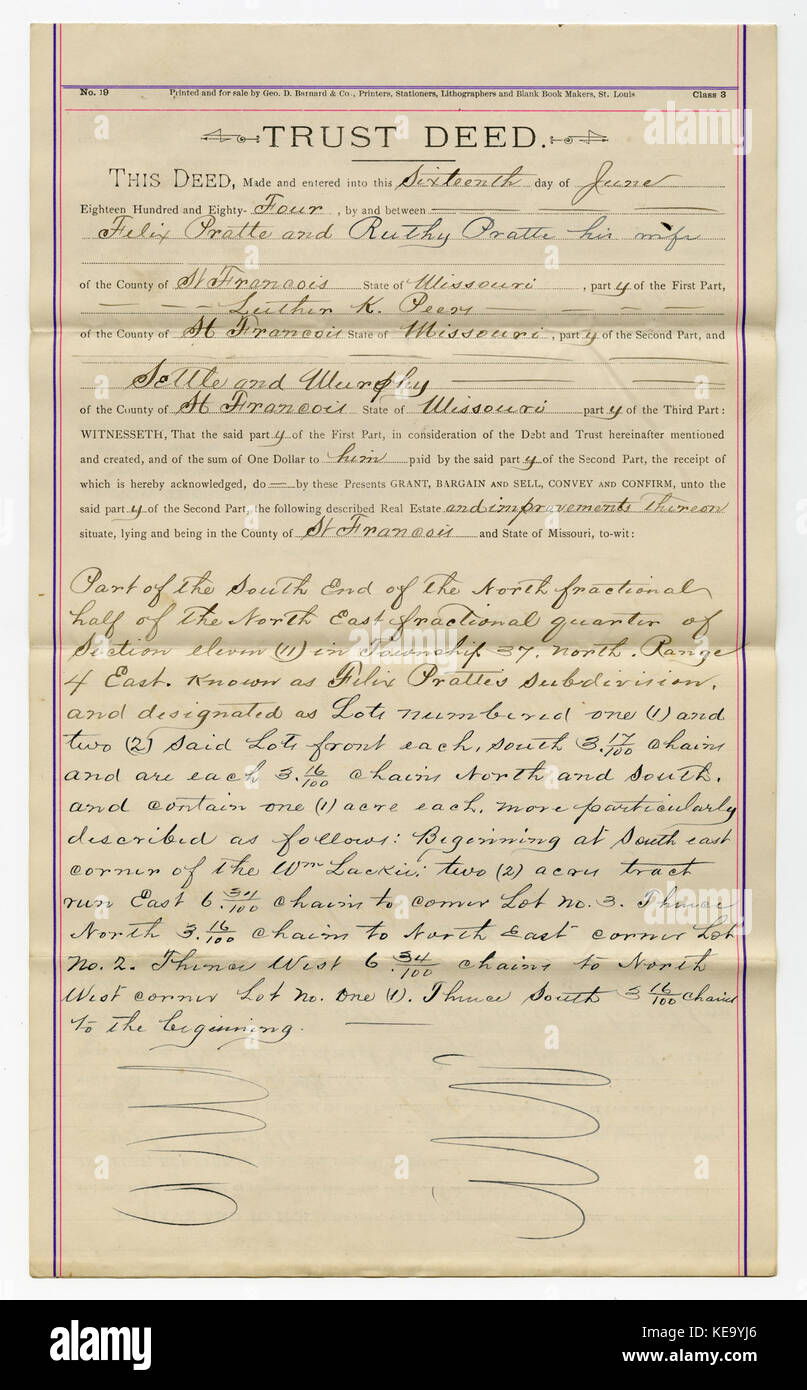 No. 19 Printed and for sale by Geo. D. Barnard & Co., Printers, Stationers, Lithographers and Blank Book Makers, St. Louis Class 3
TRUST DEED.
THIS DEED, Made and entered into this Sixteenth day of June
Eighteen Hundred and Eighty- Four , by and between
Felix Pratte and Ruthy Pratte his wife
of the County of St Francois State of Missouri , part y of the First Part,
Luther K. Peers
of the County of St Francois State of Missouri , part y of the Second Part, and
Settle and Murphy
of the County of St Francois State of Missouri part y of the Third Part:
WITNESSETH, That the said part y of the First Part, in consideration of the Debt and Trust hereinafter mentioned
and created, and of the sum of One Dollar to him paid by the said part y of the Second Part, the receipt of
which is hereby acknowledged, do — by these Presents GRANT, BARGAIN AND SELL, CONVEY AND CONFIRM, unto the
said part y of the Second Part, the following described Real Estate and improvements Thereon
situate, lying and being in the County of St Francois and State of Missouri, to-wit:
Part of the South End of the North fractional
half of the North East fractional quarter of
Section eleven (11) in Township 37. North. Range
4 East. Known as Felix Prattes Subdivision.
and designated as Lots numbered one (1) and
two (2) Said Lots front each, South 3.17/100 chains
and are each 3.16/100 chains North and South.
and contain one (1) acre each. more particularly
described as follows: Beginning at South east
corner of the Wm Lackie; two (2) acres tract
run East 6.34/100 chains to corner Lot No. 3. Thence
North 3.16/100 chains to North East corner Lot
No. 2. Thence West 6.34/100 chains to North
West corner Lot No. One (1). Thence South 3 16/100 chains
to the beginning.
alamy
alamy
alamy
a
a
a
alamy
Image ID: KE9YJ6
www.alamy.com